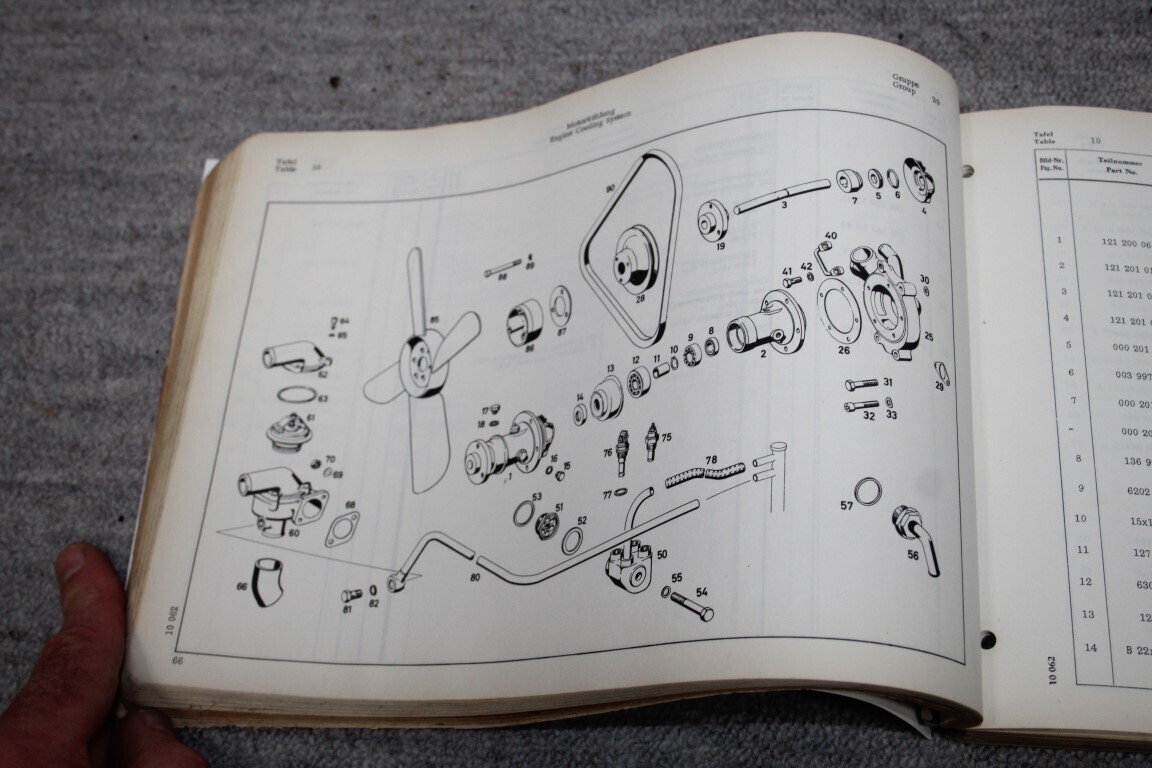 Tafel
Table 10
Motorkühlung
Engine Cooling System
Gruppe
Group 20
90
3
7
5
6
4
19
4
88
89
28
40
41
42
30
64
65
85
86
87
2
26
25
62
63
9
8
10
11
12
13
14
31
29
32
33
61
17
18
76
75
70
69
16
15
1
78
77
53
51
52
57
68
60
56
50
80
55
54
66
81
82
10 062
66
Tafel
Table 10
Bild-Nr.
Fig. No.
Teilnummer
Part No.
1 121 200 06
2 121 201 01
3 121 201 0
4 121 201
5 000 201
6 003 997
7 000 20
- 000 20
8 136 9
9 6202
10 15x1
11 127
12 630
13 12
14 B 22
10 062